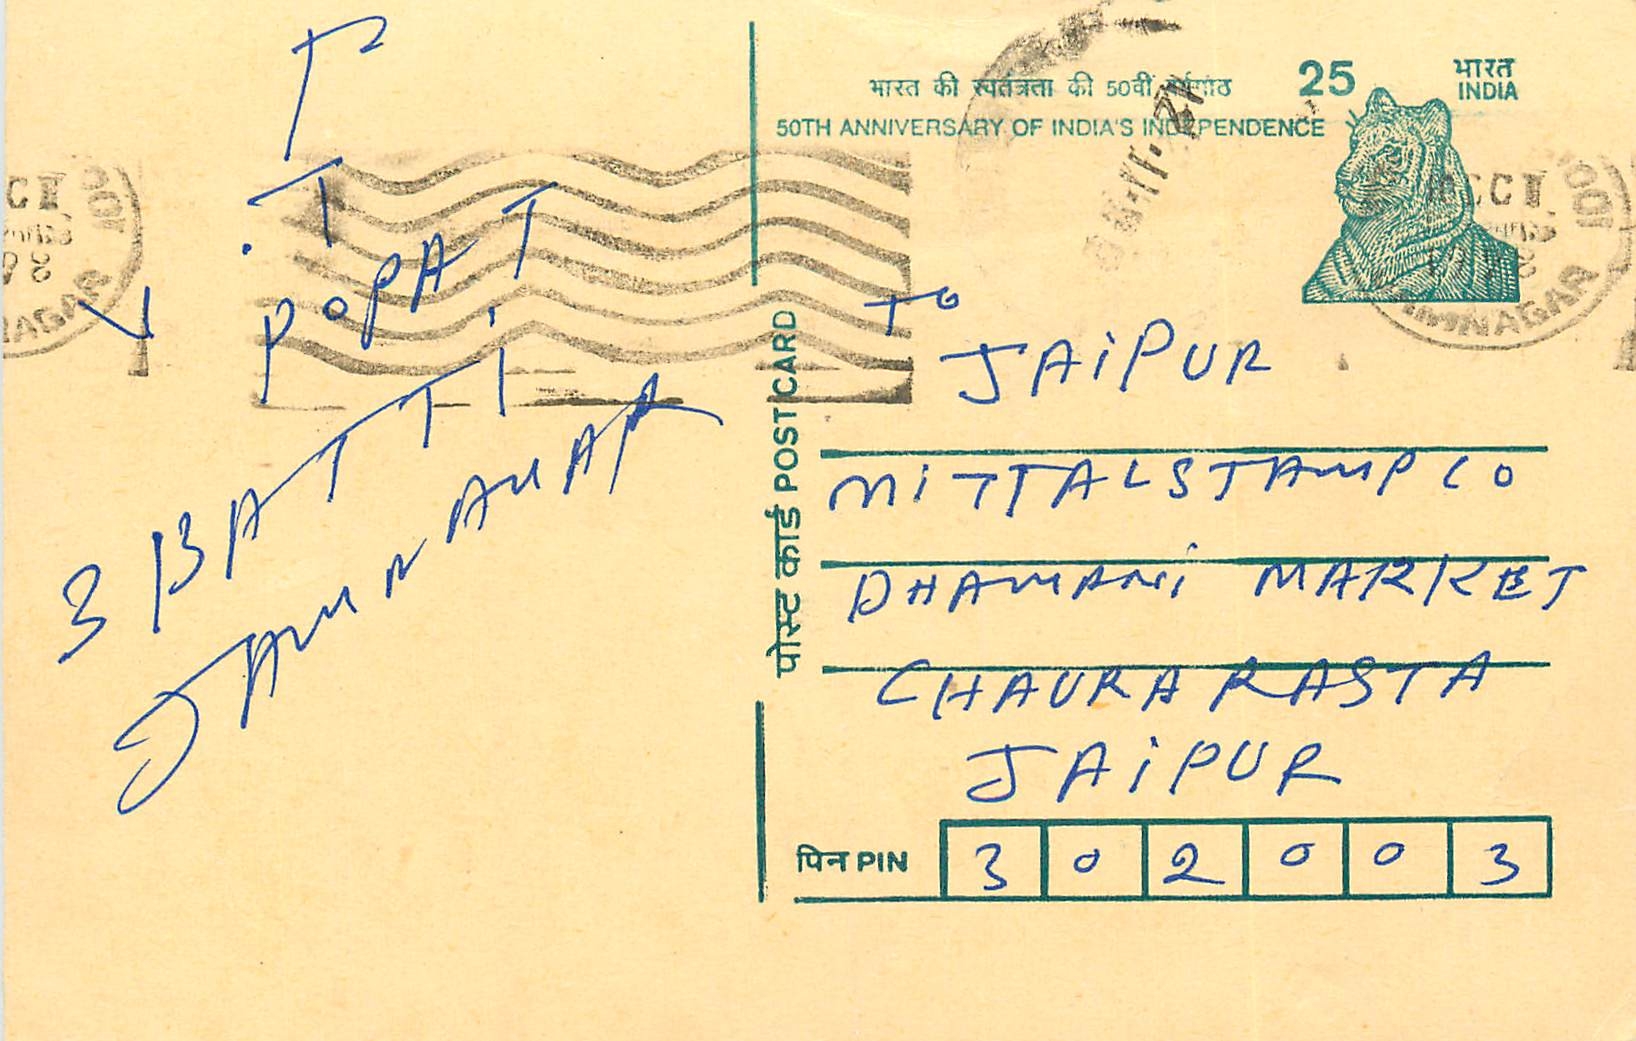 भारत की स्वतंत्रता की 50वीं वर्षगांठ
50TH ANNIVERSARY OF INDIA'S INDEPENDENCE
25
भारत
INDIA
पोस्ट कार्ड POST CARD
To
JAiPUR
MiTTAL STAMP CO
DHAMANi MARKET
CHAURA RASTA
JAiPUR
पिन PIN 3 0 2 0 0 3
POPAT
3 BATTI
JAMNAGAR